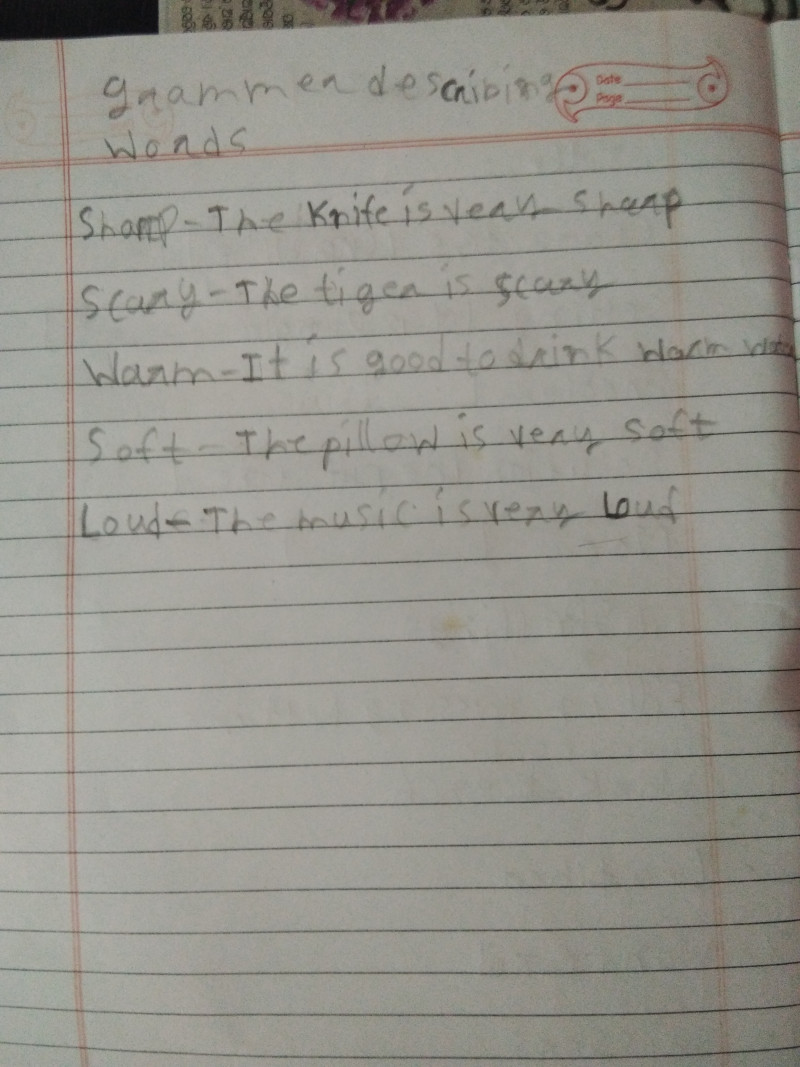 grammer describing
Date
Page
words
Sharp - The Knife is very sharp
Scary - The tiger is scary
Warm - It is good to drink warm
Soft - The pillow is very soft
Loud - The music is very Loud